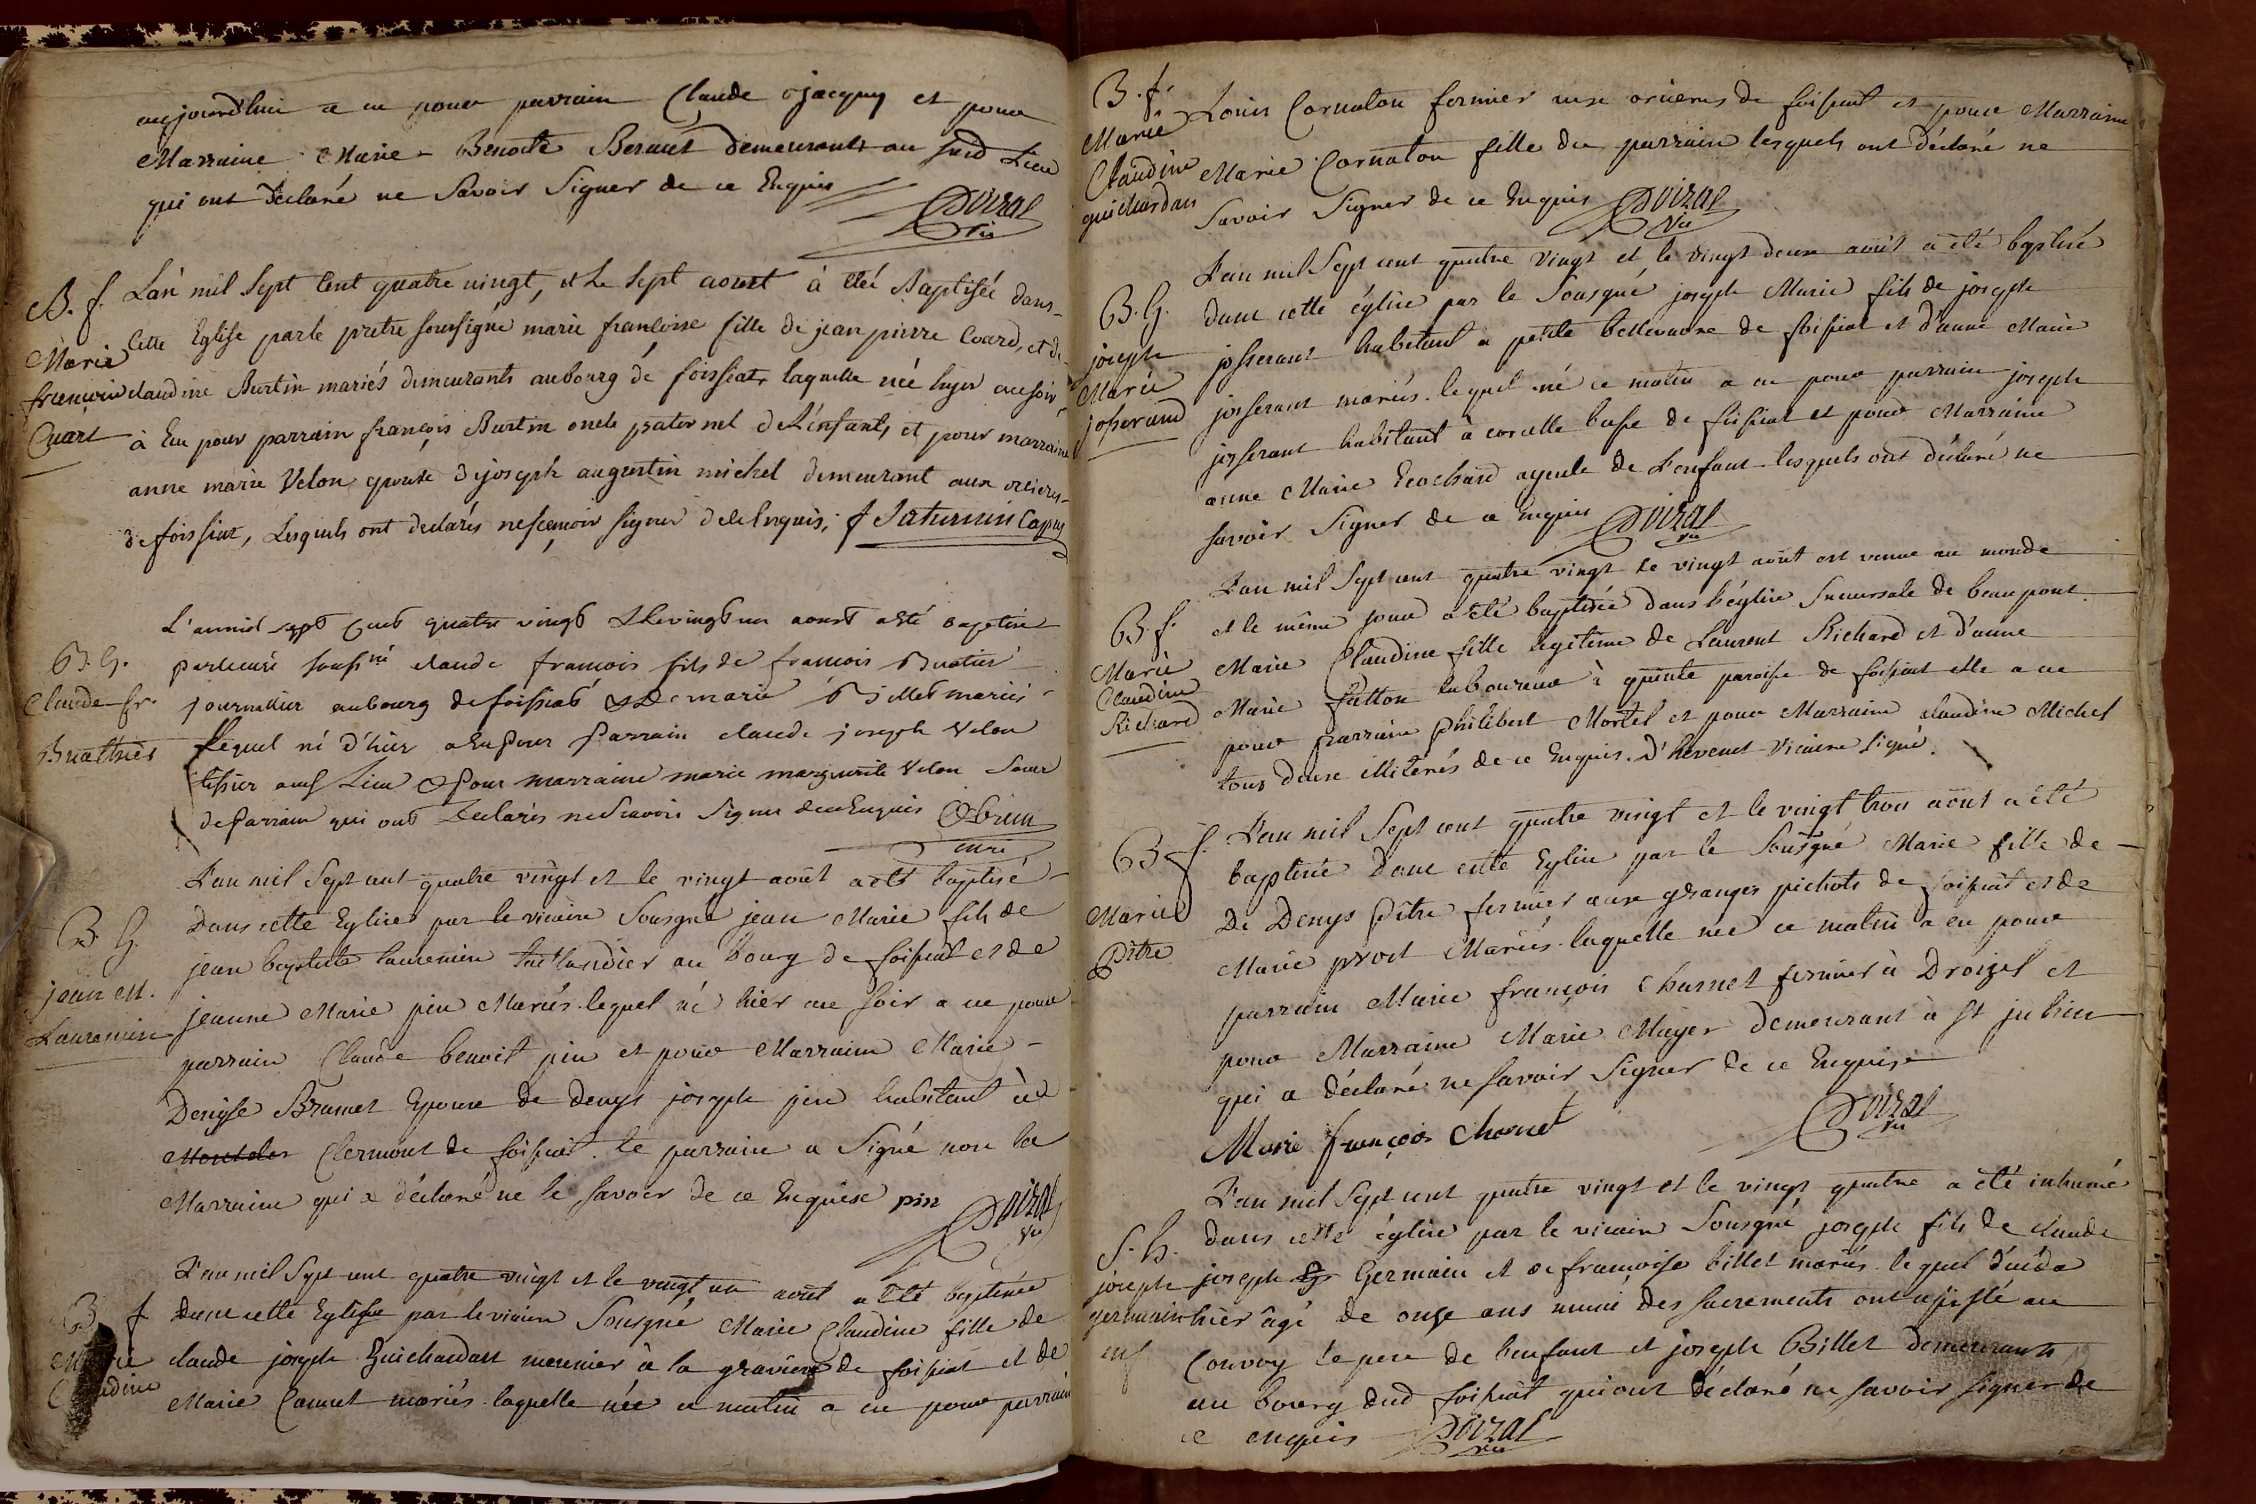 aujourdhui a eu pour parrain Claude ojacquy et pour
Marraine Marie Benoite Beraut demeurants au susd Lieu
qui ont declaré ne Savoir Signer de ce Enquis
Doizat
vic
B. f.
Marie
francoise
Cuart
L'an mil Sept Cent quatre vingt, et Le Sept aoust à eté Baptisée dans
Cette Eglise par le pretre soussigné marie francoise fille de jean pierre Coard, et de
claudine Burtin mariés demeurants au bourg de foissiat, laquelle née hyer au soir
à Eu pour parrain françois Burtin oncle paternel de L'enfant, et pour marraine
anne marie Velon epouse de joseph augustin michel demeurant aux orcieres
de foissiat, Lesquels ont declarés ne scavoir signer de ce Enquis, f Saturnin Capus
B. G.
Claude fr.
Buathier
L'an mil sept Cent quatre vingt & le vingt un aoust a été baptisé
par le curé souss né claude francois fils de francois Buatier
journallier au bourg de foissiat & de marie Billet mariés
lequel né d'hier a eu pour Parrain claude joseph Velon
tissier aud Lieu & pour marraine marie marguerite Velon Soeur
de Parrain qui ont declarés ne scavoir signer de ce Enquis
curé
B. G.
jean M.
Lauransin
L'an mil Sept cent quatre vingt et le vingt août a été baptisé
Dans cette Eglise par le vicaire Sousigné jean Marie fils de
jean baptiste taillandier au bourg de foissiat et de
jeanne Marie pin Mariés lequel né hier au soir a eu pour
parrain Claude benoit pin et pour Marraine Marie
Denyse Bramet Epouse de denys joseph pin habitant à
Clermont de foissiat. le parrain a Signé non la
Marraine qui a déclaré ne le savoir de ce Enquise pin Doizat
vic
B f
Marie
Claudine
L'an mil Sept cent quatre vingt et le vingt un août a été baptisée
Dans cette Eglise par le vicaire Sousigné Marie Claudine fille de
claude joseph Guichardan meunier à la graviere de foissiat et de
Marie Camut mariés laquelle née ce matin a eu pour parrain
B. f.
Marie
Claudine
guichardan
Louis Cornaton fermier aux orcieres de foissiat et pour Marraine
Marie Cornaton fille du parrain lesquels ont déclaré ne
Savoir Signer de ce Enquis Doizat
vic
B. G.
joseph
Marie
josserand
L'an mil Sept cent quatre vingt et le vingt deux août a été baptisé
dans cette église par le Sousigné joseph Marie fils de joseph
josserant habitant a petite bellevavre de foissiat et d'anne Marie
josserant mariés. lequel né ce matin a eu pour parrain joseph
josserant habitant à corcelle basse de foissiat et pour Marraine
anne Marie Ecochard ayeule de L'enfant lesquels ont déclaré ne
savoir Signer de ce enquis Doizat
vic
B. f.
Marie
Claudine
Richard
L'an mil Sept cent quatre vingt le vingt août est venue au monde
et le même jour a été baptisée dans l'église Succursale de beaupont
Marie Claudine fille legitime de Laurent Richard et d'anne
Marie fatton laboureur à quinte paroisse de foissiat elle a eu
pour parrain philibert Mortel et pour Marraine claudine Michel
tous deux illiterés de ce Enquis. D'hevenet vicaire signé.
B f.
Marie
Pitre
L'an mil Sept cent quatre vingt et le vingt trois août a été
baptisée Dans cette Eglise par le Sousigné Marie fille de
De Denys Pitre fermier aux granges pichots de foissiat et de
Marie prost Mariés. laquelle née ce matin a eu pour
parrain Marie françois Charnet fermier à Droizel et
pour Marraine Marie Mayer demeurant à St julien
qui a déclaré ne savoir Signer de ce Enquise
Marie françois Charnet
Doizat
vic
S. h.
joseph
germain
enf
L'an mil Sept cent quatre vingt et le vingt quatre a été inhumé
dans cette église par le vicaire Sousigné joseph fils de claude
joseph Germain et de francoise billet mariés. lequel décédé
hier âgé de onze ans muni des sacrements ont assisté au
Convoy le pere de l'enfant et joseph Billet demeurants
au bourg dud foissiat qui ont déclaré ne savoir signer de
ce enquis Doizat
vic